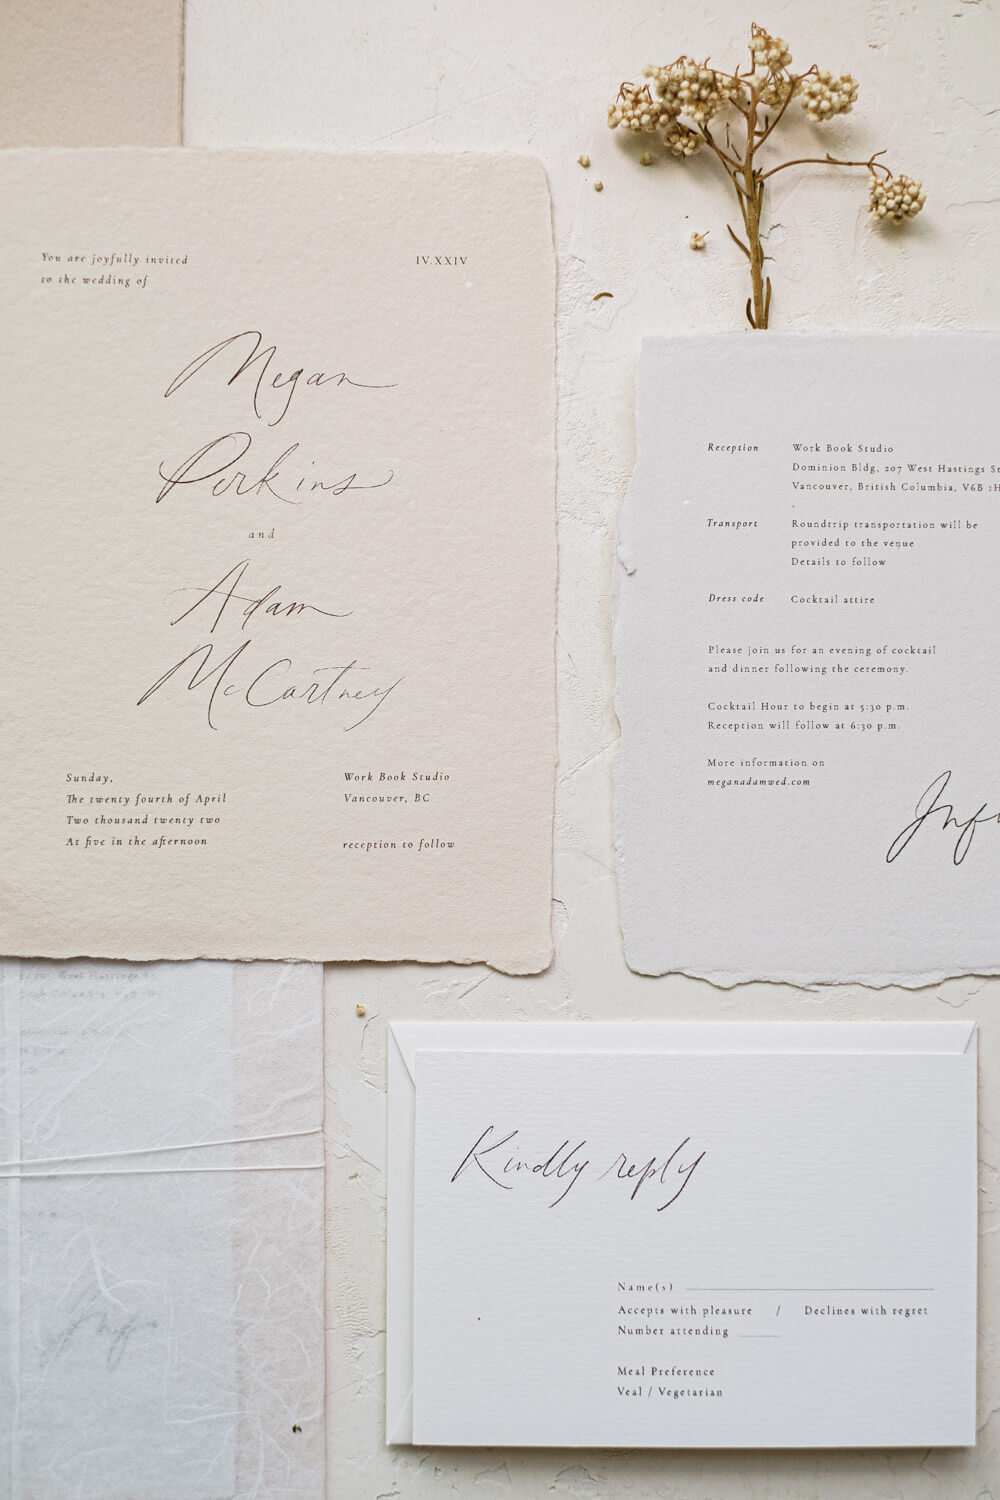 You are joyfully invited
to the wedding of
IV.XXIV
Megan
Perkins
and
Adam
McCartney
Sunday,
The twenty fourth of April
Two thousand twenty two
At five in the afternoon
Work Book Studio
Vancouver, BC
reception to follow
Reception Work Book Studio
Dominion Bldg, 207 West Hastings St
Vancouver, British Columbia, V6B 1H
Transport Roundtrip transportation will be
provided to the venue
Details to follow
Dress code Cocktail attire
Please join us for an evening of cocktail
and dinner following the ceremony.
Cocktail Hour to begin at 5:30 p.m.
Reception will follow at 6:30 p.m.
More information on
meganadamwed.com
Kindly reply
Name(s)
Accepts with pleasure / Declines with regret
Number attending
Meal Preference
Veal / Vegetarian